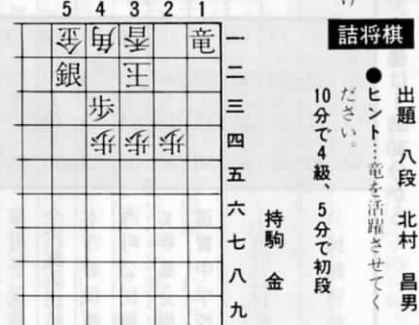 詰将棋
出題 八段 北村 昌男
●ヒント…竜を活躍させてく
ださい。
10分で4級、5分で初段
持駒 金
5 4 3 2 1
金 角 香 竜 一
銀 王 二
歩 三
歩 歩 歩 四
五
六
七
八
九